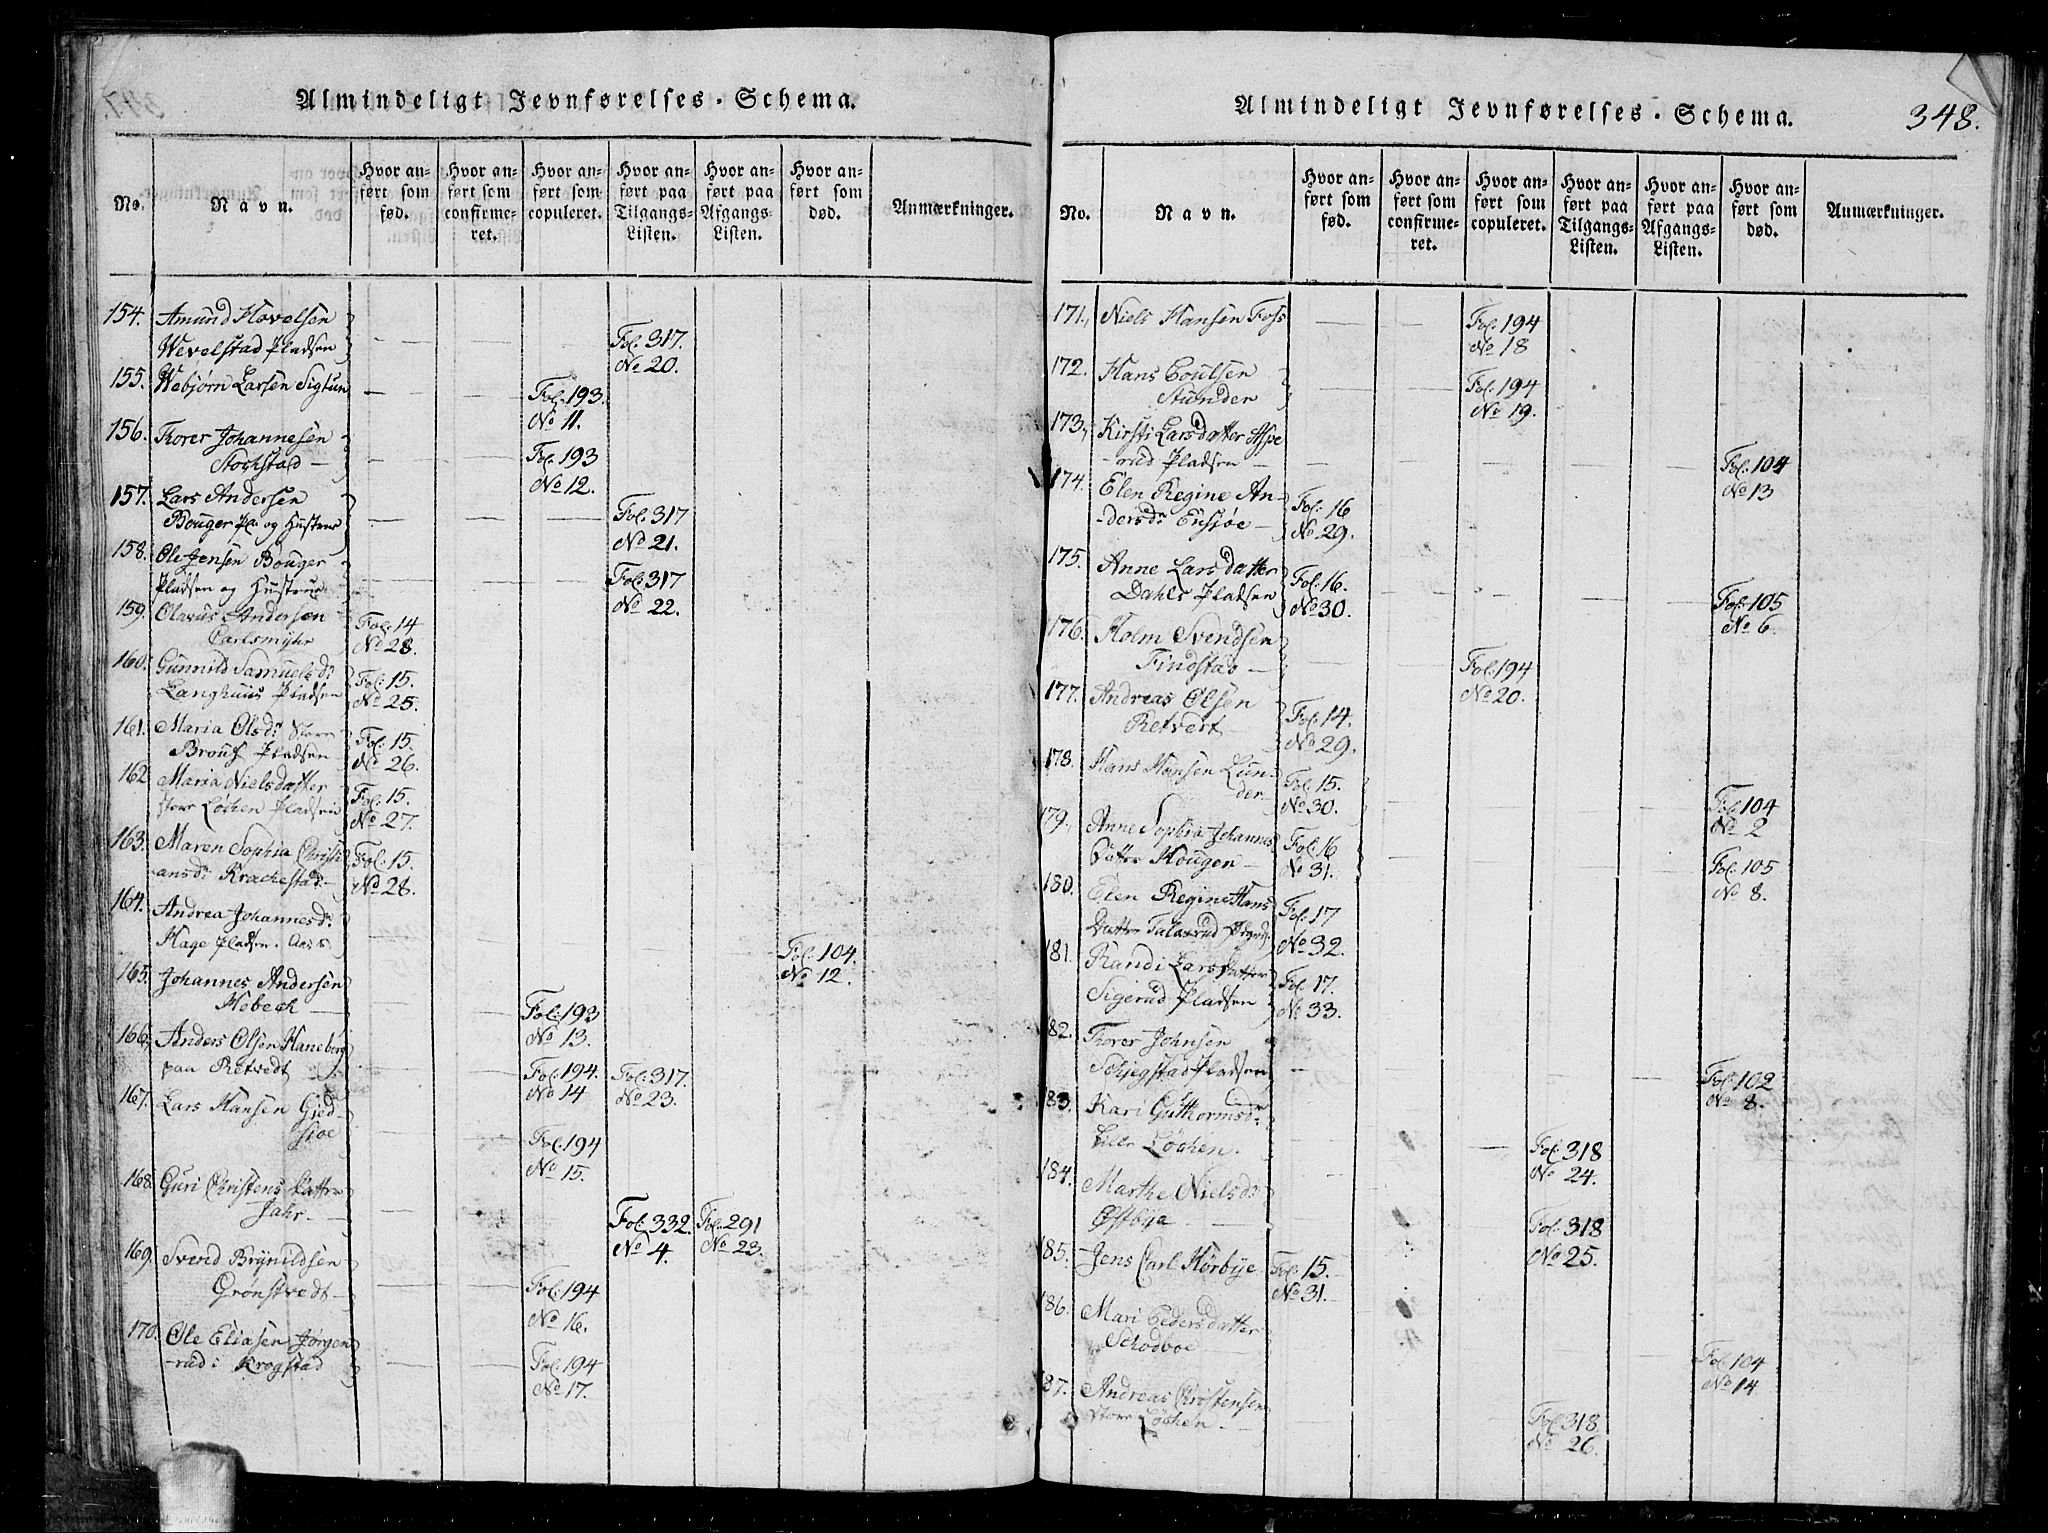 Almindeligt Jevnførelses-Schema.
No.
Navn.
Hvor anført som fød.
Hvor anført som confirmeret.
Hvor anført som copuleret.
Hvor anført paa Tilgangs-Listen.
Hvor anført paa Afgangs-Listen.
Hvor anført som død.
Anmærkninger.
154. Amund Hovelsen
Wevelstad Pladsen Fol. 317.
No 20.
155. Webjørn Larsen Sigtun Fol. 193.
No 11.
156. Thorer Johannesen
Stochstad Fol. 193
No 12.
157. Lars Andersen
Bouger Pl. og Hustrue Fol. 317
No 21.
158. Ole Jensen Bouger
Pladsen og Hustrue Fol. 317
No 22.
159. Olavus Andersen Fol. 14
Carlsmyhr No 28.
160. Gunnild Samuelsdr Fol. 15.
Langhuus Pladsen No 25.
161. Maria Olsdr Store Fol. 15.
Pladsen No 26.
162 Maria Nielsdatter Fol. 15.
store Løchen Pladsen No 27.
163. Maren Sophia Christi Fol. 15.
ansdr Krachestad No 28.
164. Andrea Johannesdr
Hage Pladsen. Aass Fol. 104.
No 12.
165. Johannes Andersen
Hebech Fol. 193
No 13.
166. Anders Olsen Haneborg
paa Retvedt Fol. 194. Fol. 317.
No 14 No 23.
167. Lars Hansen Gjed-
sjoe Fol. 194
No 15.
168. Guri Christens datter
Jahr Fol. 332. Fol. 291
No 4. No 23.
169. Svend Brynildsen
Grønstvedt Fol. 194
No 16.
170. Ole Eliasen Jørgen
-rud i Krogstad Fol. 194
No 17.
Almindeligt Jevnførelses-Schema.
348.
No.
Navn.
Hvor anført som fød.
Hvor anført som confirmeret.
Hvor anført som copuleret.
Hvor anført paa Tilgangs-Listen.
Hvor anført paa Afgangs-Listen.
Hvor anført som død.
Anmærkninger.
171. Niels Hansen Foss Fol. 194
No 18
172. Hans Poulsen Fol. 194
Stunder No 19.
173. Kirsti Larsdatter Aspe
-rud Pladsen Fol. 104
No 13
174. Elen Regine An- Fol. 16
-dersdr Ensjøe No 29.
175. Anne Larsdatter Fol. 16.
Dahls Pladsen No 30. Fol. 105
No 6.
176. Holm Svendsen
Findstad Fol. 194
No 20.
177. Andreas Olsen Fol. 14.
Retvert No 29.
178. Hans Hansen Lun- Fol. 15.
der No 30. Fol. 104
No 2
179. Anne Sophia Johannes Fol. 16
datter Hougen No 31. Fol. 105
No 8.
180. Elen Regine Hans Fol. 17
Datter No 32.
181. Randi Larsdatter Fol. 17.
Sigerud Pladsen No 33.
82. Thorer Johnsen
Schjegstad Pladsen Fol. 102
No 8.
83. Kari Guthormsdr
Lille Løchen. Fol. 318
No 24.
184. Marthe Nielsdr
Østbye Fol. 318
No 25.
185. Jens Carl Hørbye Fol. 15.
No 31.
86. Mari Pedersdatter
Schodboe Fol. 104
No 14
87. Andreas Christensen
store Løchen. Fol. 318.
No 26.